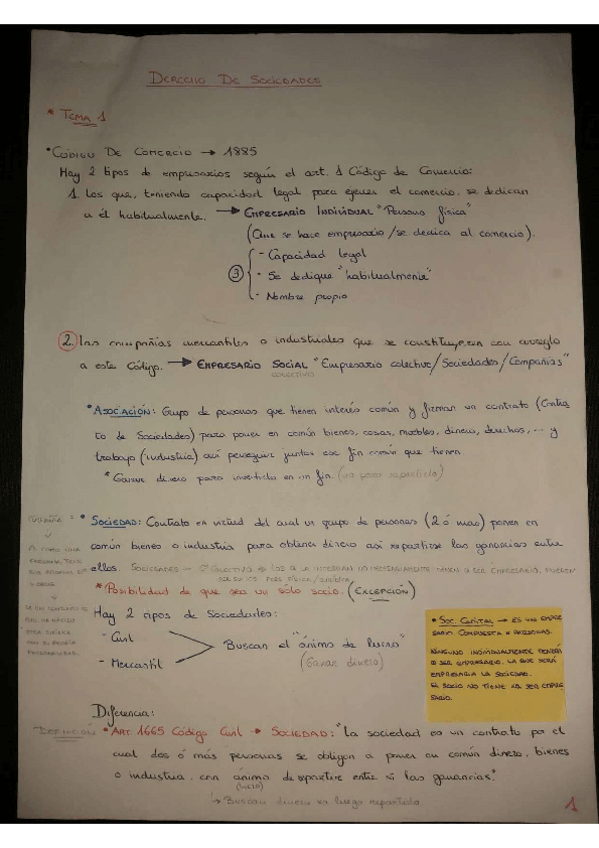 DERECHO DE SOCIEDADES
* TEMA 1
* CÓDIGO DE COMERCIO → 1885
Hay 2 tipos de empresarios según el art. 1 Código de Comercio:
1. Los que, teniendo capacidad legal para ejercer el comercio, se dedican
a él habitualmente. → EMPRESARIO INDIVIDUAL "Persona física"
(Que se hace empresario/se dedica al comercio).
- Capacidad legal
③ - Se dedique "habitualmente"
- Nombre propio
2. Las compañías mercantiles o industriales que se constituyeren con arreglo
a este Código. → EMPRESARIO SOCIAL "Empresario colectivo/Sociedades/Compañías"
COLECTIVO
* ASOCIACIÓN: Grupo de personas que tienen interés común y firman un contrato (Contra
to de Sociedades) para poner en común bienes, cosas, muebles, dinero, derechos, ... y
trabajo (industria) así perseguir juntos ese fin común que tienen.
* Ganar dinero para invertirlo en un fin. (no para repartirlo)
* SOCIEDAD: Contrato en virtud del cual un grupo de personas (2 ó más) ponen en
común bienes o industria para obtener dinero así repartirse las ganancias entre
ellos. SOCIEDADES → Eº COLECTIVO → LOS Q LA INTEGRAN NO NECESARIAMENTE TIENEN Q SER EMPRESARIO, PUEDEN
SER SOCIOS PERS FÍSICA/JURÍDICA
* Posibilidad de que sea un sólo socio. (EXCEPCIÓN)
Hay 2 tipos de Sociedades:
- Civil
- Mercantil
Buscan el "ánimo de lucro"
(Ganar dinero)
* SOC. CAPITAL → ES UN EMPRE
SARIO COMPUESTA x PERSONAS.
NINGUNO INDIVIDUALMENTE TENDRÁ
Q SER EMPRESARIO. LA QUE SERÁ
EMPRESARIA LA SOCIEDAD.
EL SOCIO NO TIENE XQ SER EMPRE
SARIO.
Diferencia:
DEFINICIÓN * ART. 1665 Código Civil → SOCIEDAD: "La sociedad es un contrato por el
cual dos ó más personas se obligan a poner en común dinero, bienes
o industria, con ánimo de repartir entre sí las ganancias."
(lucro)
→ Buscan dinero xa luego repartirlo
1